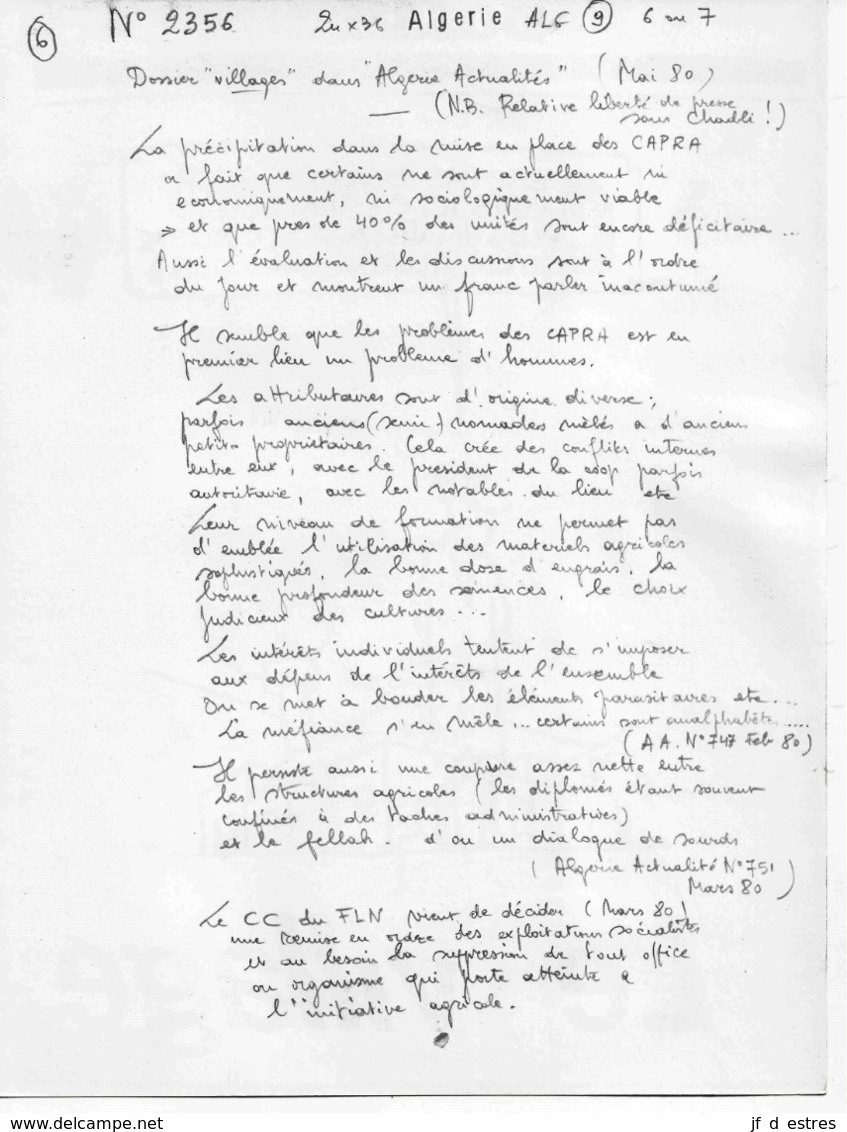 6 N° 2356 24x36 Algerie ALG 9 6 ou 7
Dossier "villages" dans "Algerie Actualités" (Mai 80)
(N.B. Relative liberté de presse
sous Chadli !)
La précipitation dans la mise en place des CAPRA
a fait que certains ne sont actuellement ni
economiquement, ni sociologiquement viable
⇒ et que pres de 40% des unités sont encore déficitaire ...
Aussi l'évaluation et les discussions sont à l'ordre
du jour et montrent un franc parler inacoutumé
Il semble que les problèmes des CAPRA est en
premier lieu un problème d'hommes.
Les attributaires sont d'origine diverse ;
parfois anciens (semi) nomades mêlés a d'anciens
petits propriétaires. Cela crée des conflits internes
entre eux, avec le president de la coop parfois
autoritaire, avec les notables du lieu etc
Leur niveau de formation ne permet pas
d'emblée l'utilisation des materiels agricoles
sophistiqués, la bonne dose d'engrais, la
bonne profondeur des semences, le choix
judicieux des cultures ...
Les intérêts individuels tentent de s'imposer
aux dépens de l'intérêts de l'ensemble
On se met à bouder les éléments parasitaires etc....
La méfiance s'en mêle ... certains sont analphabète .....
(A A. N° 747 Feb 80)
Il persiste aussi une coupure assez nette entre
les structures agricoles (les diplomés étant souvent
confinés à des taches administratives)
et le fellah. d'ou un dialogue de sourds
(Algerie Actualité N° 751
Mars 80)
Le CC du FLN vient de décider (Mars 80)
une remise en ordre des exploitations socialistes
et au besoin la suppression de tout office
ou organisme qui porte atteinte a
l'initiative agricole.
www.delcampe.net jf d estres